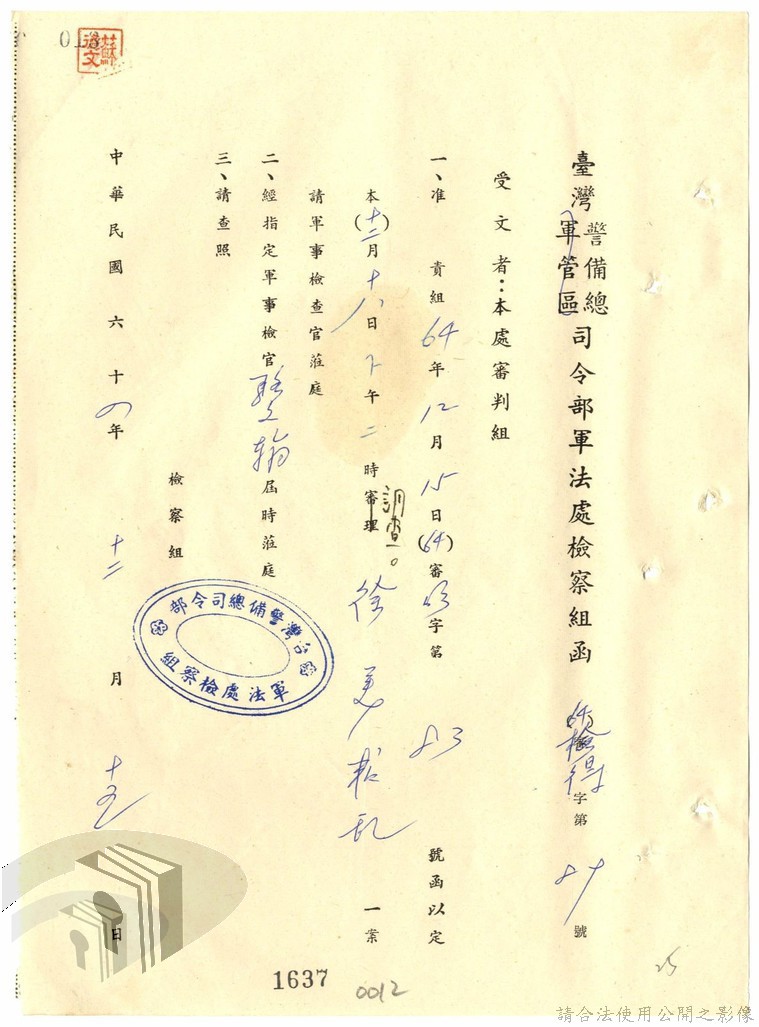 臺灣警備總軍管區司令部軍法處檢察組函 (64)檢得字第89號
受文者：本處審判組
一、准 貴組64年12月15日(64)審字第83號函以定
本(十二)月十八日下午二時審理調查。徐美一案
請軍事檢查官蒞庭
二、經指定軍事檢官屆時蒞庭
三、請查照
檢察組
中華民國六十四年十二月十五日
台灣警備總司令部
軍法處檢察組
018
1637
0012
25
請合法使用公開之影像